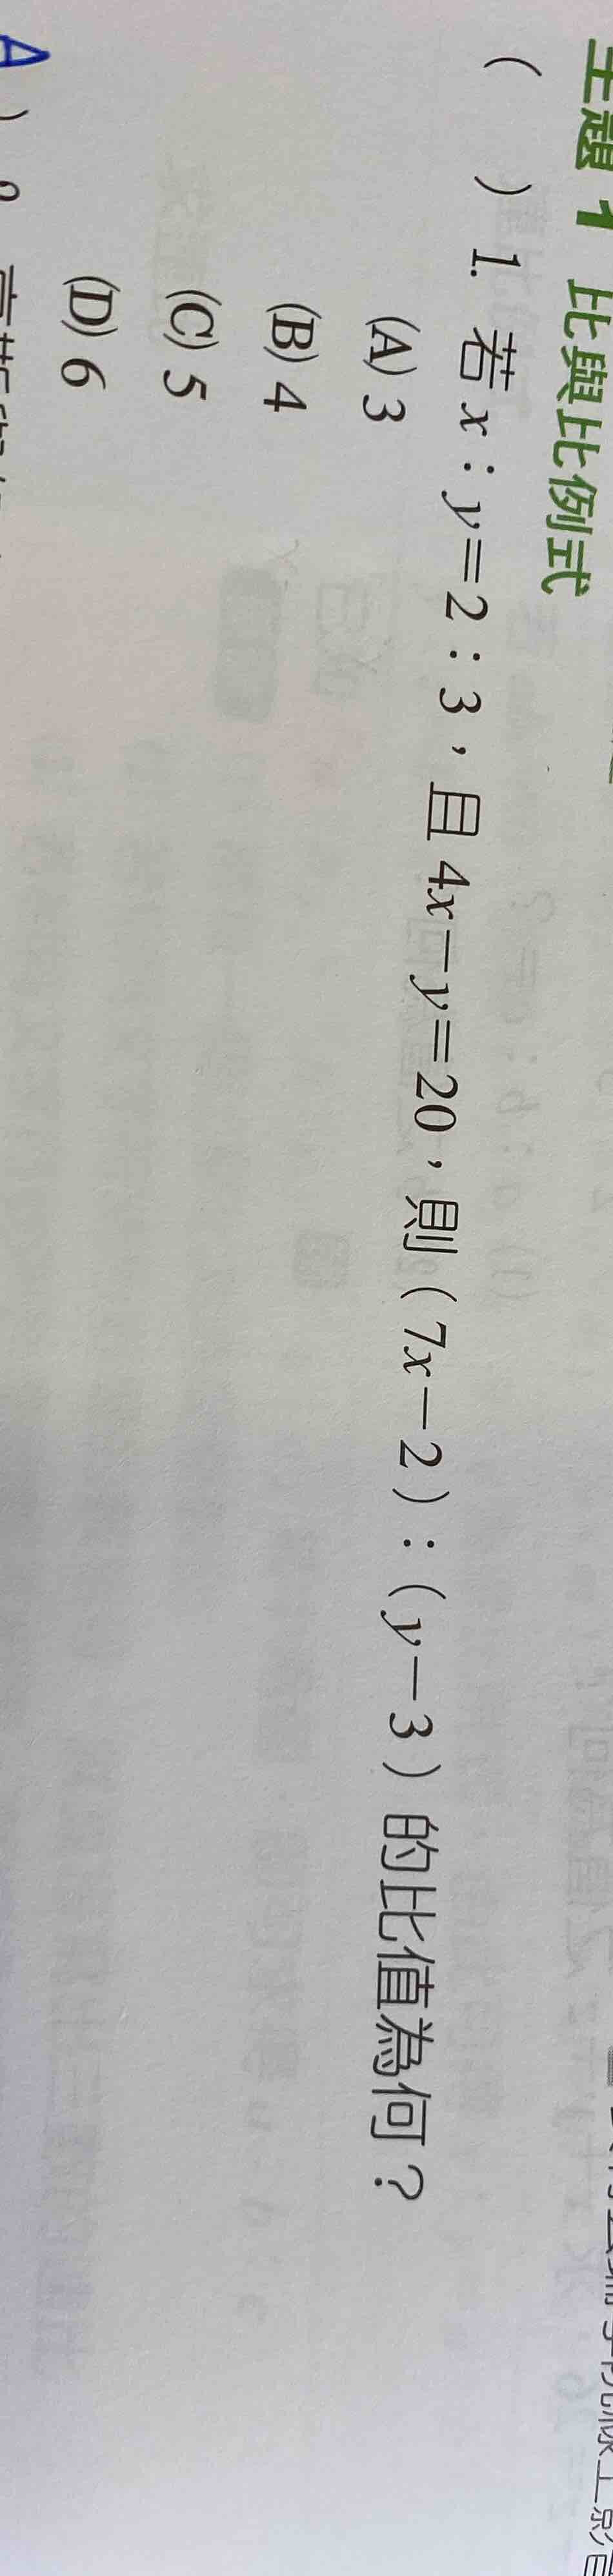 主題1 比與比例式
( ) 1. 若 x：y=2：3，且 4x－y=20，則（7x－2）：（y－3）的比值為何？
(A) 3
(B) 4
(C) 5
(D) 6
A )